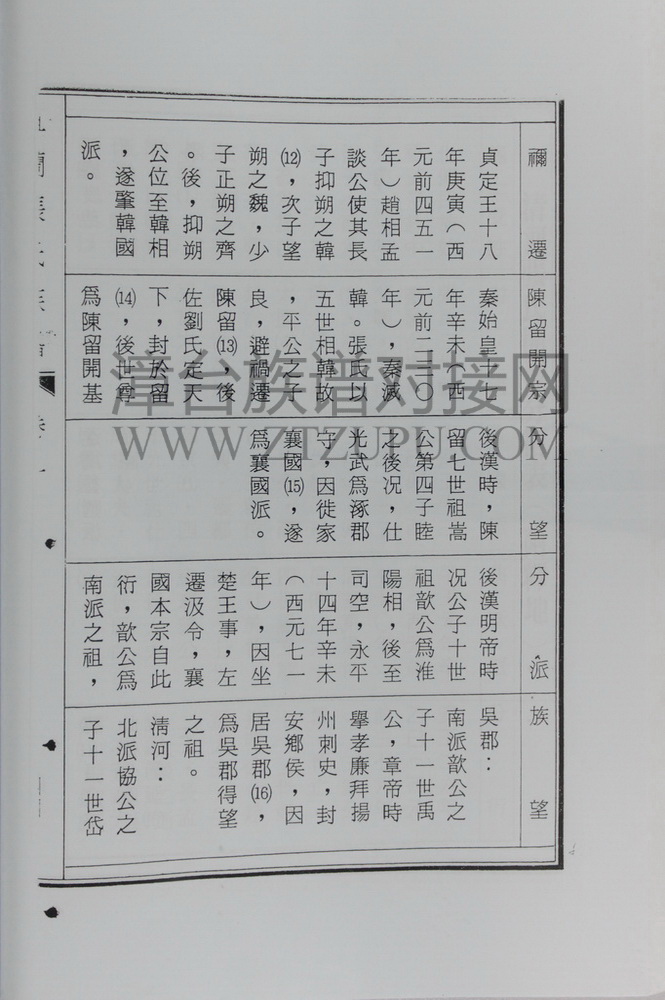 禰遷
貞定王十八
年庚寅（西
元前四五一
年）趙相孟
談公使其長
子抑朔之韓
⑿，次子望
朔之魏，少
子正朔之齊
。後，抑朔
公位至韓相
，遂肇韓國
派。
陳留開宗
秦始皇十七
年辛未（西
元前二三〇
年），秦滅
韓。張氏以
五世相韓故
，平公之子
良，避禍遷
陳留⒀，後
佐劉氏定天
下，封於留
⒁，後世尊
爲陳留開基
分望
後漢時，陳
留七世祖嵩
公第四子睦
之後况，仕
光武爲涿郡
守，因徙家
襄國⒂，遂
爲襄國派。
分派
後漢明帝時
况公子十世
祖歆公爲淮
陽相，後至
司空，永平
十四年辛未
（西元七一
年），因坐
楚王事，左
遷汲令，襄
國本宗自此
衍，歆公爲
南派之祖，
族望
吳郡：
南派歆公之
子十一世禹
公，章帝時
舉孝廉拜揚
州刺史，封
安鄉侯，因
居吳郡⒃，
爲吳郡得望
之祖。
清河：
北派協公之
子十一世岱
漳台族谱对接网
WWW.ZTZUPU.COM